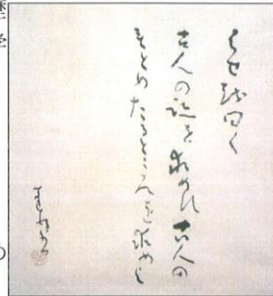 はせを曰く
古人の跡を求めす古人の
もとめたるところを求めよ